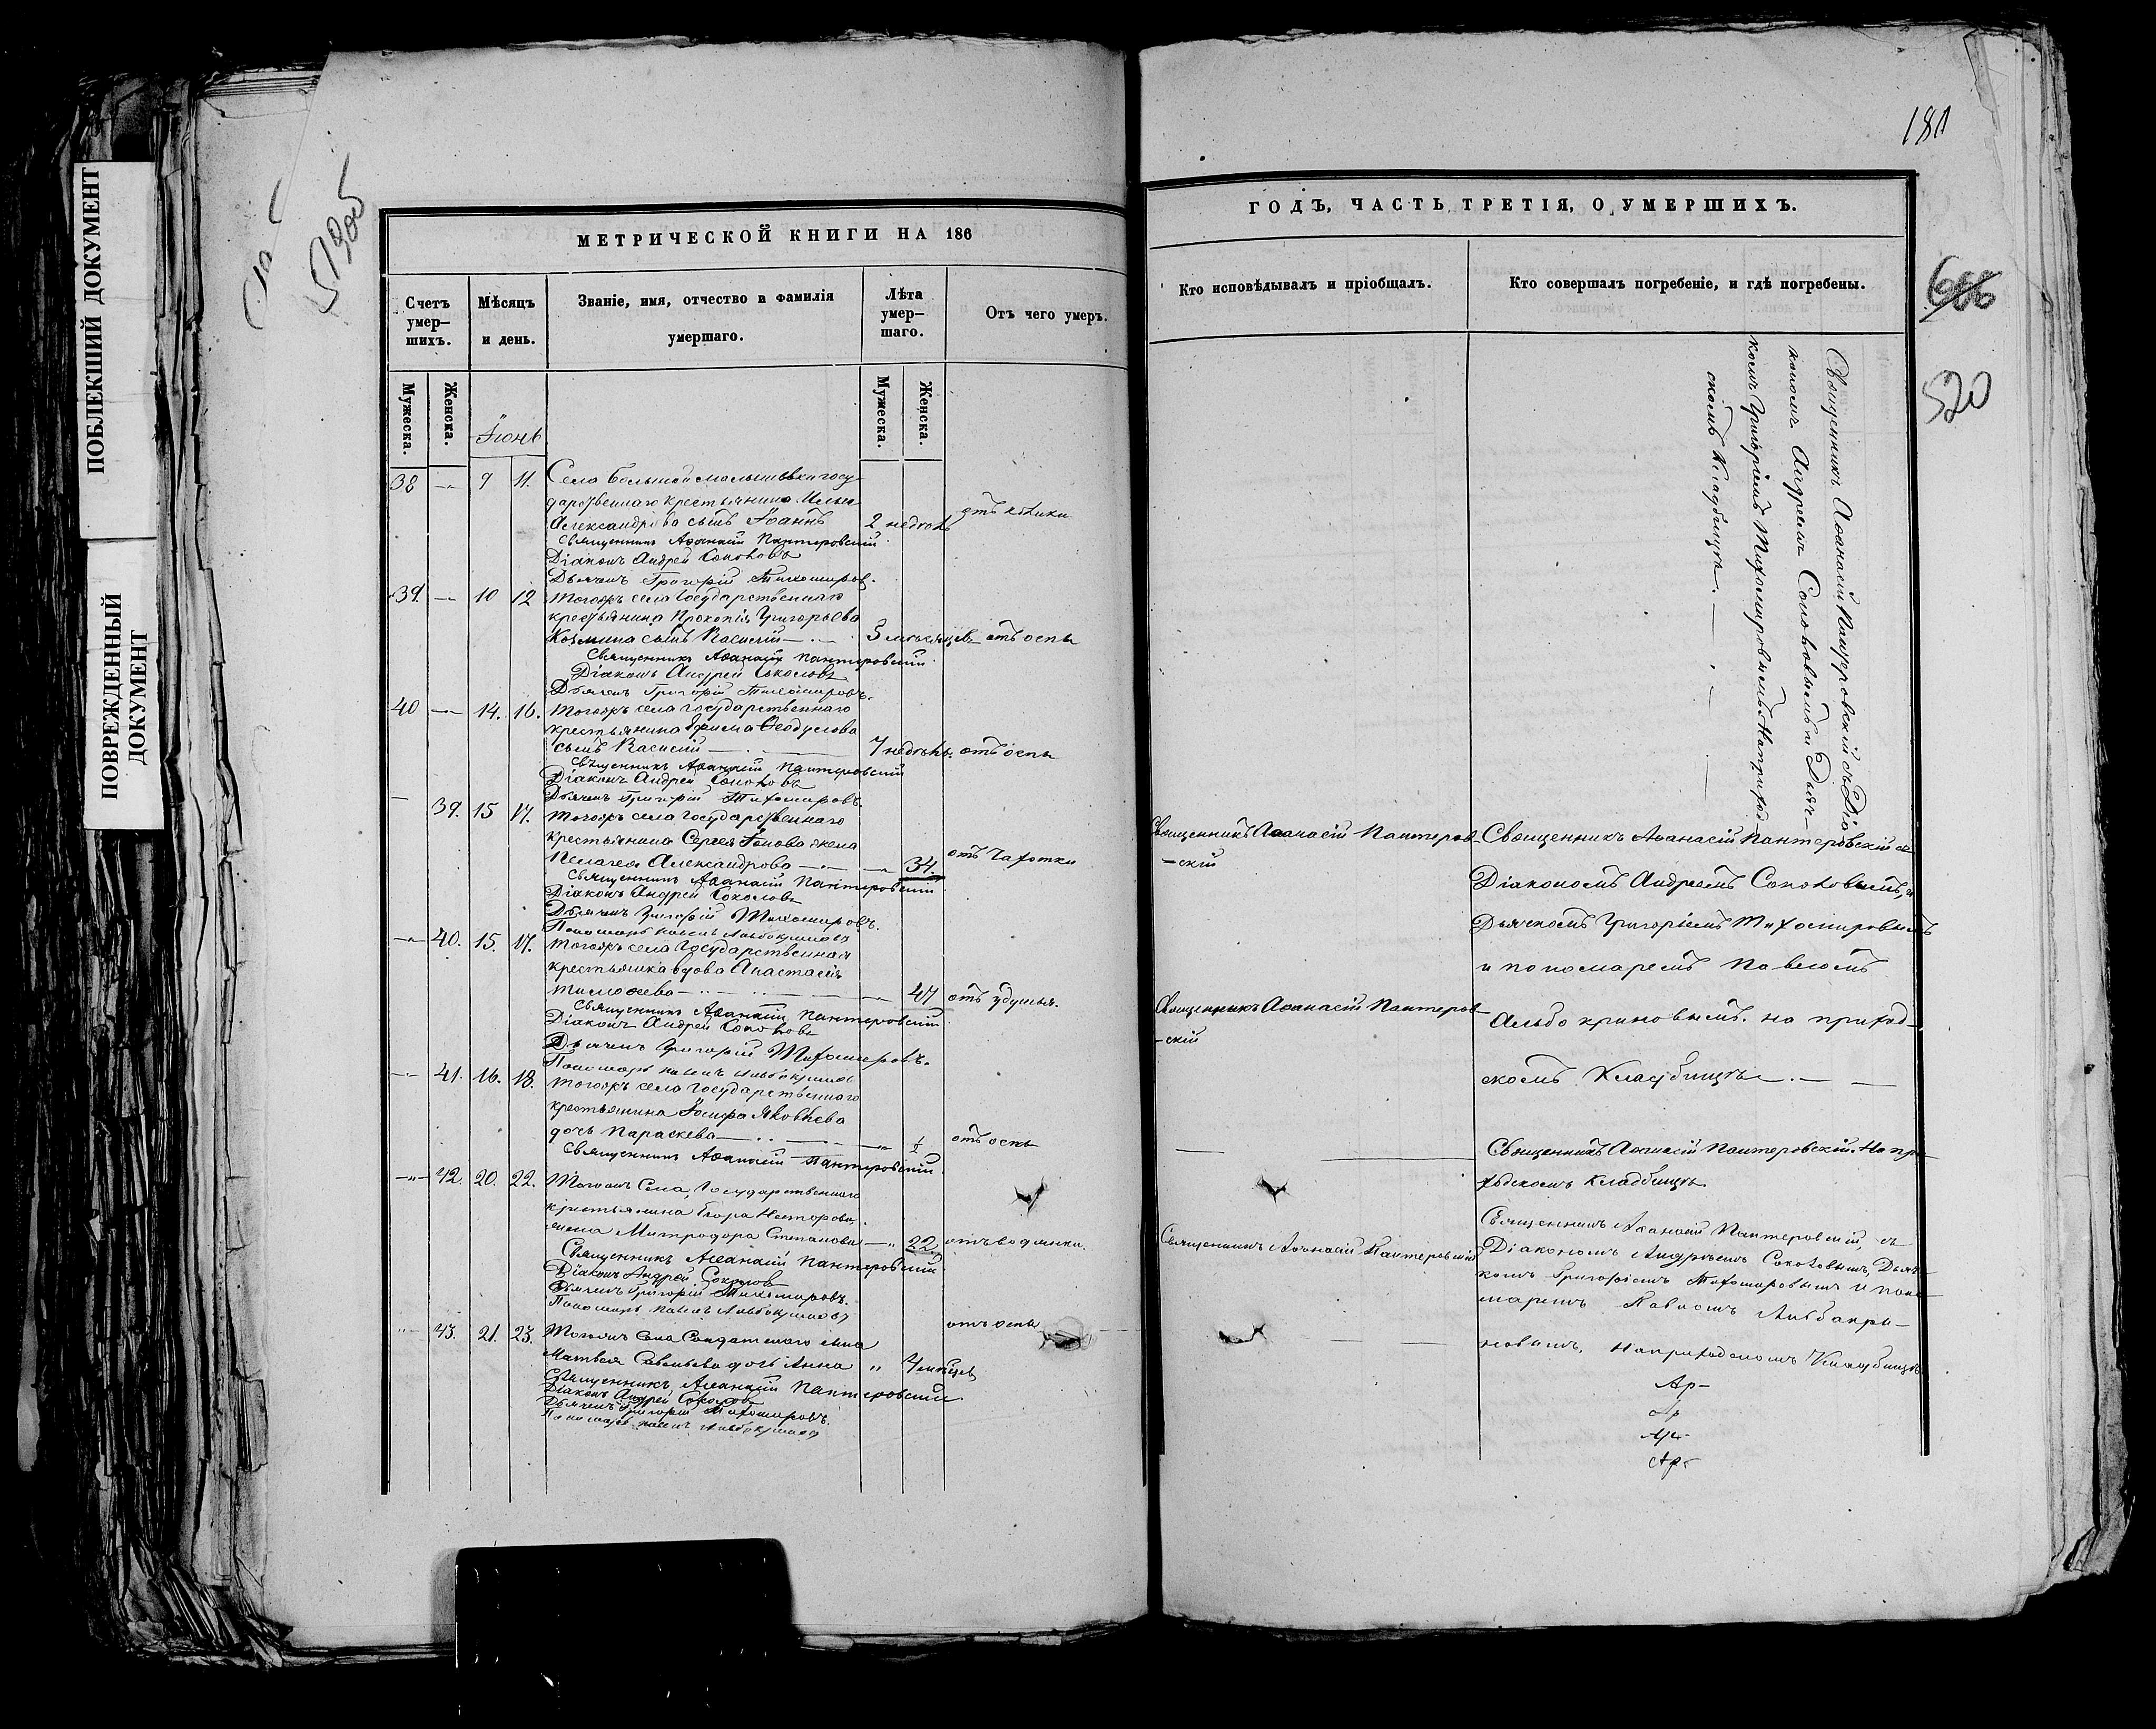 ПОБЛЕКШИЙ ДОКУМЕНТ
ПОВРЕЖДЕННЫЙ
ДОКУМЕНТ
МЕТРИЧЕСКОЙ КНИГИ НА 186
Счетъ умер-шихъ.
Мѣсяцъ и день.
Званіе, имя, отчество и фамилія умершаго.
Лѣта умер-шаго.
Отъ чего умеръ.
Мужеска.
Женска.
Мужеска.
Женска.
Іюнь
38 9 11. Села Большой Малышевки госу-
дарственнаго крестьянина Ильи
Александрова сынъ Іоаннъ 2 недѣль отъ колики
Священникъ Аѳанасій Пантеровскій
Діаконъ Андрей Соколовъ
Дьячекъ Григорій Тихомировъ.
39. 10 12 Тогожъ села государственнаго
крестьянина Прокопія Григорьева
Козмина сынъ Василій 3 мѣсяцев отъ оспы
Священникъ Аѳанасій Пантеровскій
Діаконъ Андрей Соколовъ
Дьячекъ Григорій Тихомировъ.
40 14. 16. Тогожъ села государственнаго
крестьянина Ефима Ѳеодулова
сынъ Василій 7 недѣль. отъ оспы
Священникъ Аѳанасій Пантеровскій
Діаконъ Андрей Соколовъ
Дьячекъ Григорій Тихомировъ
39. 15 17. Тогожъ села государственнаго
крестьянина Сергея жена
Пелагея Александрова 34. отъ чахотки
Священникъ Аѳанасій Пантеровскій
Діаконъ Андрей Соколовъ
Дьячекъ Григорій Тихомировъ.
Пономарь Павелъ Альбокриновъ
40. 15. 17. Тогожъ села государственная
крестьянка вдова Анастасія
Тимоѳева 47 отъ удушья.
Священникъ Аѳанасій Пантеровскій
Діаконъ Андрей Соколовъ
Дьячекъ Григорій Тихомировъ.
Пономарь Павелъ Альбокриновъ
41. 16. 18. Тогожъ села государственнаго
крестьянина Іосифа Яковлева
дочь Параскева отъ оспы
Священникъ Аѳанасій Пантеровскій
42. 20. 22. Тогожъ Села, Государственнаго
крестьянина Егора Несторова
жена Митродора Степанова 22. отъ водянки.
Священникъ Аѳанасій Пантеровскій
Діаконъ Андрей Соколовъ
Дьячекъ Григорій Тихомировъ.
Пономарь Павелъ Альбокриновъ
43. 21. 23. Тогожъ Села Солдатскаго сына
Матвея Савельева дочь Анна " отъ оспы
Священникъ, Аѳанасій Пантеровскій
Діаконъ Андрей Соколовъ
Дьячекъ Григорій Тихомировъ.
Пономарь Павелъ Альбокриновъ
181
ГОДЪ, ЧАСТЬ ТРЕТІЯ, О УМЕРШИХЪ.
Кто исповѣдывалъ и пріобщалъ.
Кто совершалъ погребеніе, и гдѣ погребены.
520
Священникъ Аѳанасій Пантеровскій съ Діа-
кономъ Андреемъ Соколовымъ и Дьяч-
комъ Григоріемъ Тихомировымъ. На приход-
скомъ кладбищѣ.
Священникъ Аѳанасій Пантеров-
-скій
Священникъ Аѳанасій Пантеровскій съ
Діакономъ Андреемъ Соколовымъ, и
Дьячкомъ Григоріемъ Тихомировымъ
и пономаремъ Павломъ
Альбокриновымъ. на приход-
скомъ Кладбищѣ.
Священникъ Аѳанасій Пантеров-
-скій
Священникъ Аѳанасій Пантеровскій. На при-
ходскомъ кладбищѣ.
Священникъ Аѳанасій Пантеровскій
Священникъ Аѳанасій Пантеровскій, съ
Діакономъ Андреемъ Соколовымъ, Дьяч-
комъ Григоріемъ Тихомировымъ и поно-
маремъ Павломъ Альбокри-
новымъ, На приходскомъ Кладбищѣ.